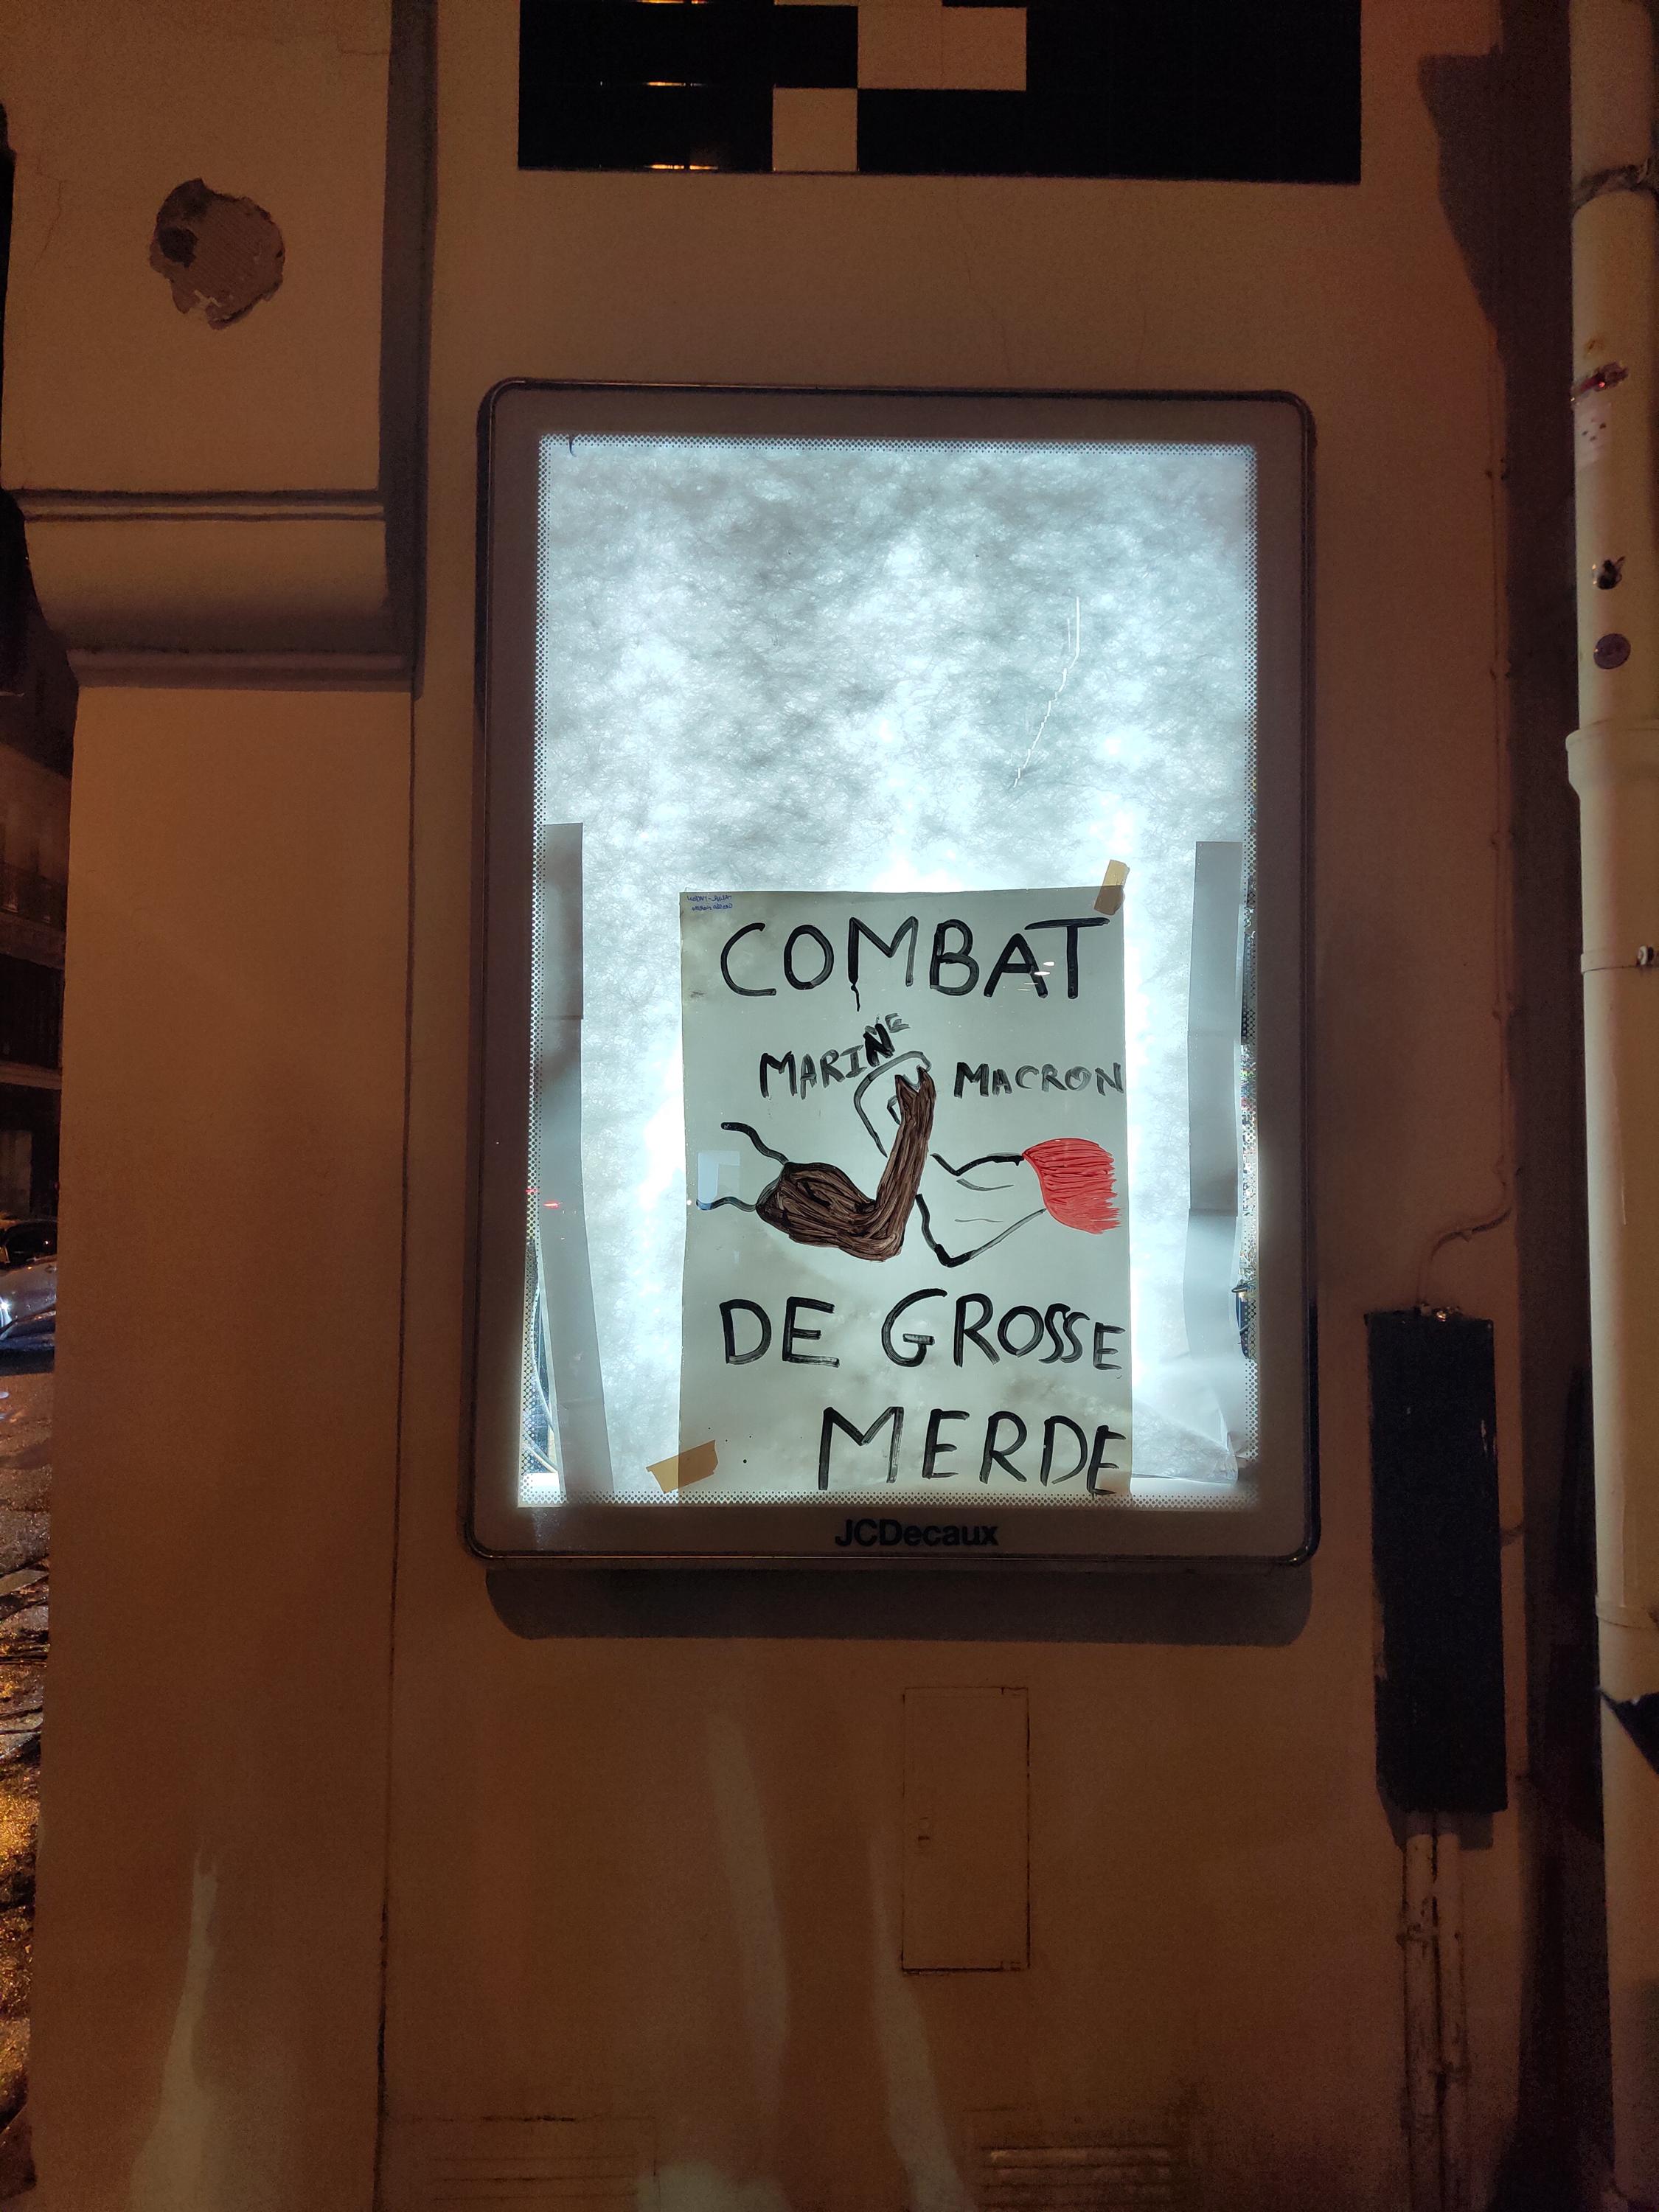 COMBAT
MARINE MACRON
DE GROSSE
MERDE
JCDecaux